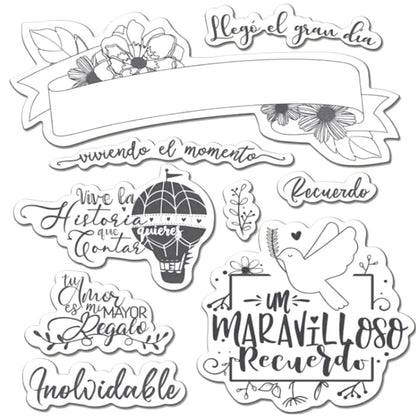 Llegó el gran día
viviendo el momento
Recuerdo
Vive la
Historia
que quieres
Contar
tu
Amor
es mi MAYOR
Regalo
un
MARAVILLOSO
Recuerdo
Inolvidable